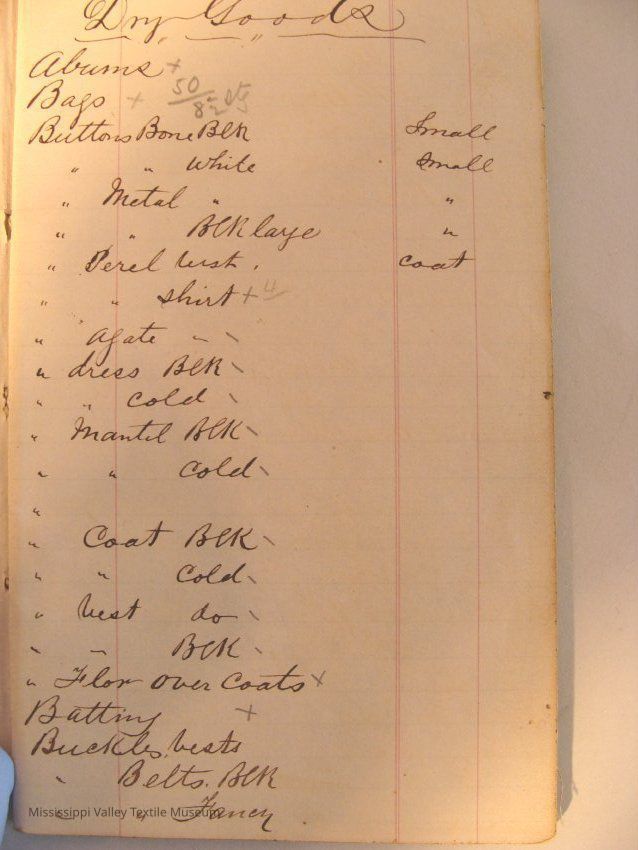 Dry Goods
Abums +
Bags + 50/8
Buttons Bone Blk Small
" " White Small
" Metal " "
" " Blk large "
" Perel Vest . Coat
" " Shirt + 4
" Agate " \
" dress Blk \
" " cold \
" Mantil Blk \
" " cold \
"
" Coat Blk \
" " cold \
" Vest do \
" " Blk \
" Flor over Coats x
Batting +
Buckles Vests
" Belts. Blk
" " Fancy
Mississippi Valley Textile Museum